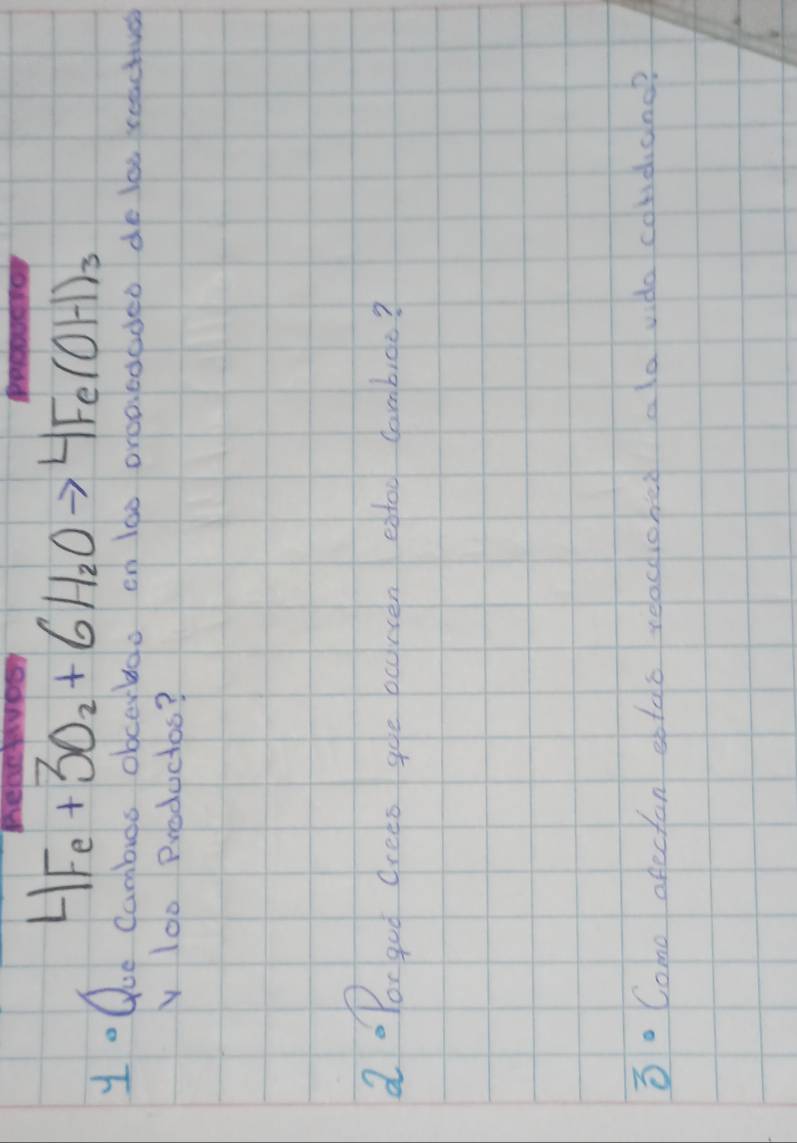 Reactivos Producto
4Fe + 3O₂ + 6H₂O → 4Fe(OH)₃
1. Que cambios obcerbas en las propiedades de los reactivos
y los Productos?
2. Porqué Crees que ocurren estos cambios?
3. Como afectan estas reacciones ala vida cotidiana?